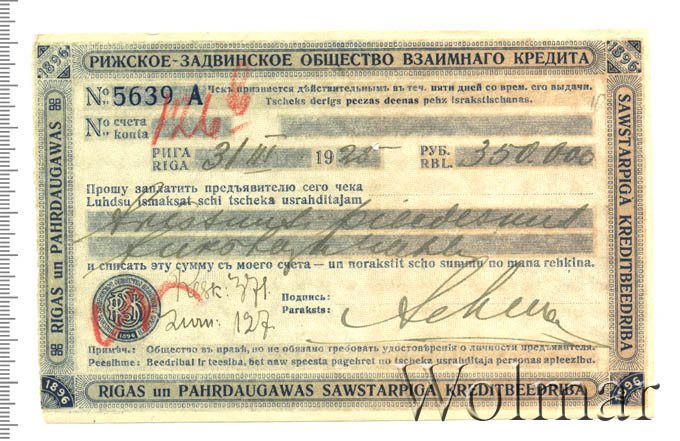 1896 РИЖСКОЕ-ЗАДВИНСКОЕ ОБЩЕСТВО ВЗАИМНАГО КРЕДИТА 1896
№ 5639 A Чекъ признается дѣйствительнымъ въ теч. пяти дней со врем. его выдачи.
Tscheks derigs peezas deenas pehz israkstischanas.
№ счета
konta
РИГА
RIGA 31/III 1925 РУБ.
RBL. 350.000
Прошу заплатить предъявителю сего чека
Luhdsu ismaksat schi tscheka usrahditajam
и списать эту сумму съ моего счета — un norakstit scho summu no mana rehkina.
371.
127
Подпись:
Paraksts:
Примѣч.: Общество въ правѣ, но не обязано требовать удостовѣренія о личности предъявителя.
Peesihme: Beedribai ir teesiba, bet naw speesta pagehret no tscheka usrahditaja personas apleezibu.
1896 RIGAS un PAHRDAUGAWAS SAWSTARPIGA KREDITBEEDRIBA 1896
RIGAS un PAHRDAUGAWAS
SAWSTARPIGA KREDITBEEDRIBA
Wolmar